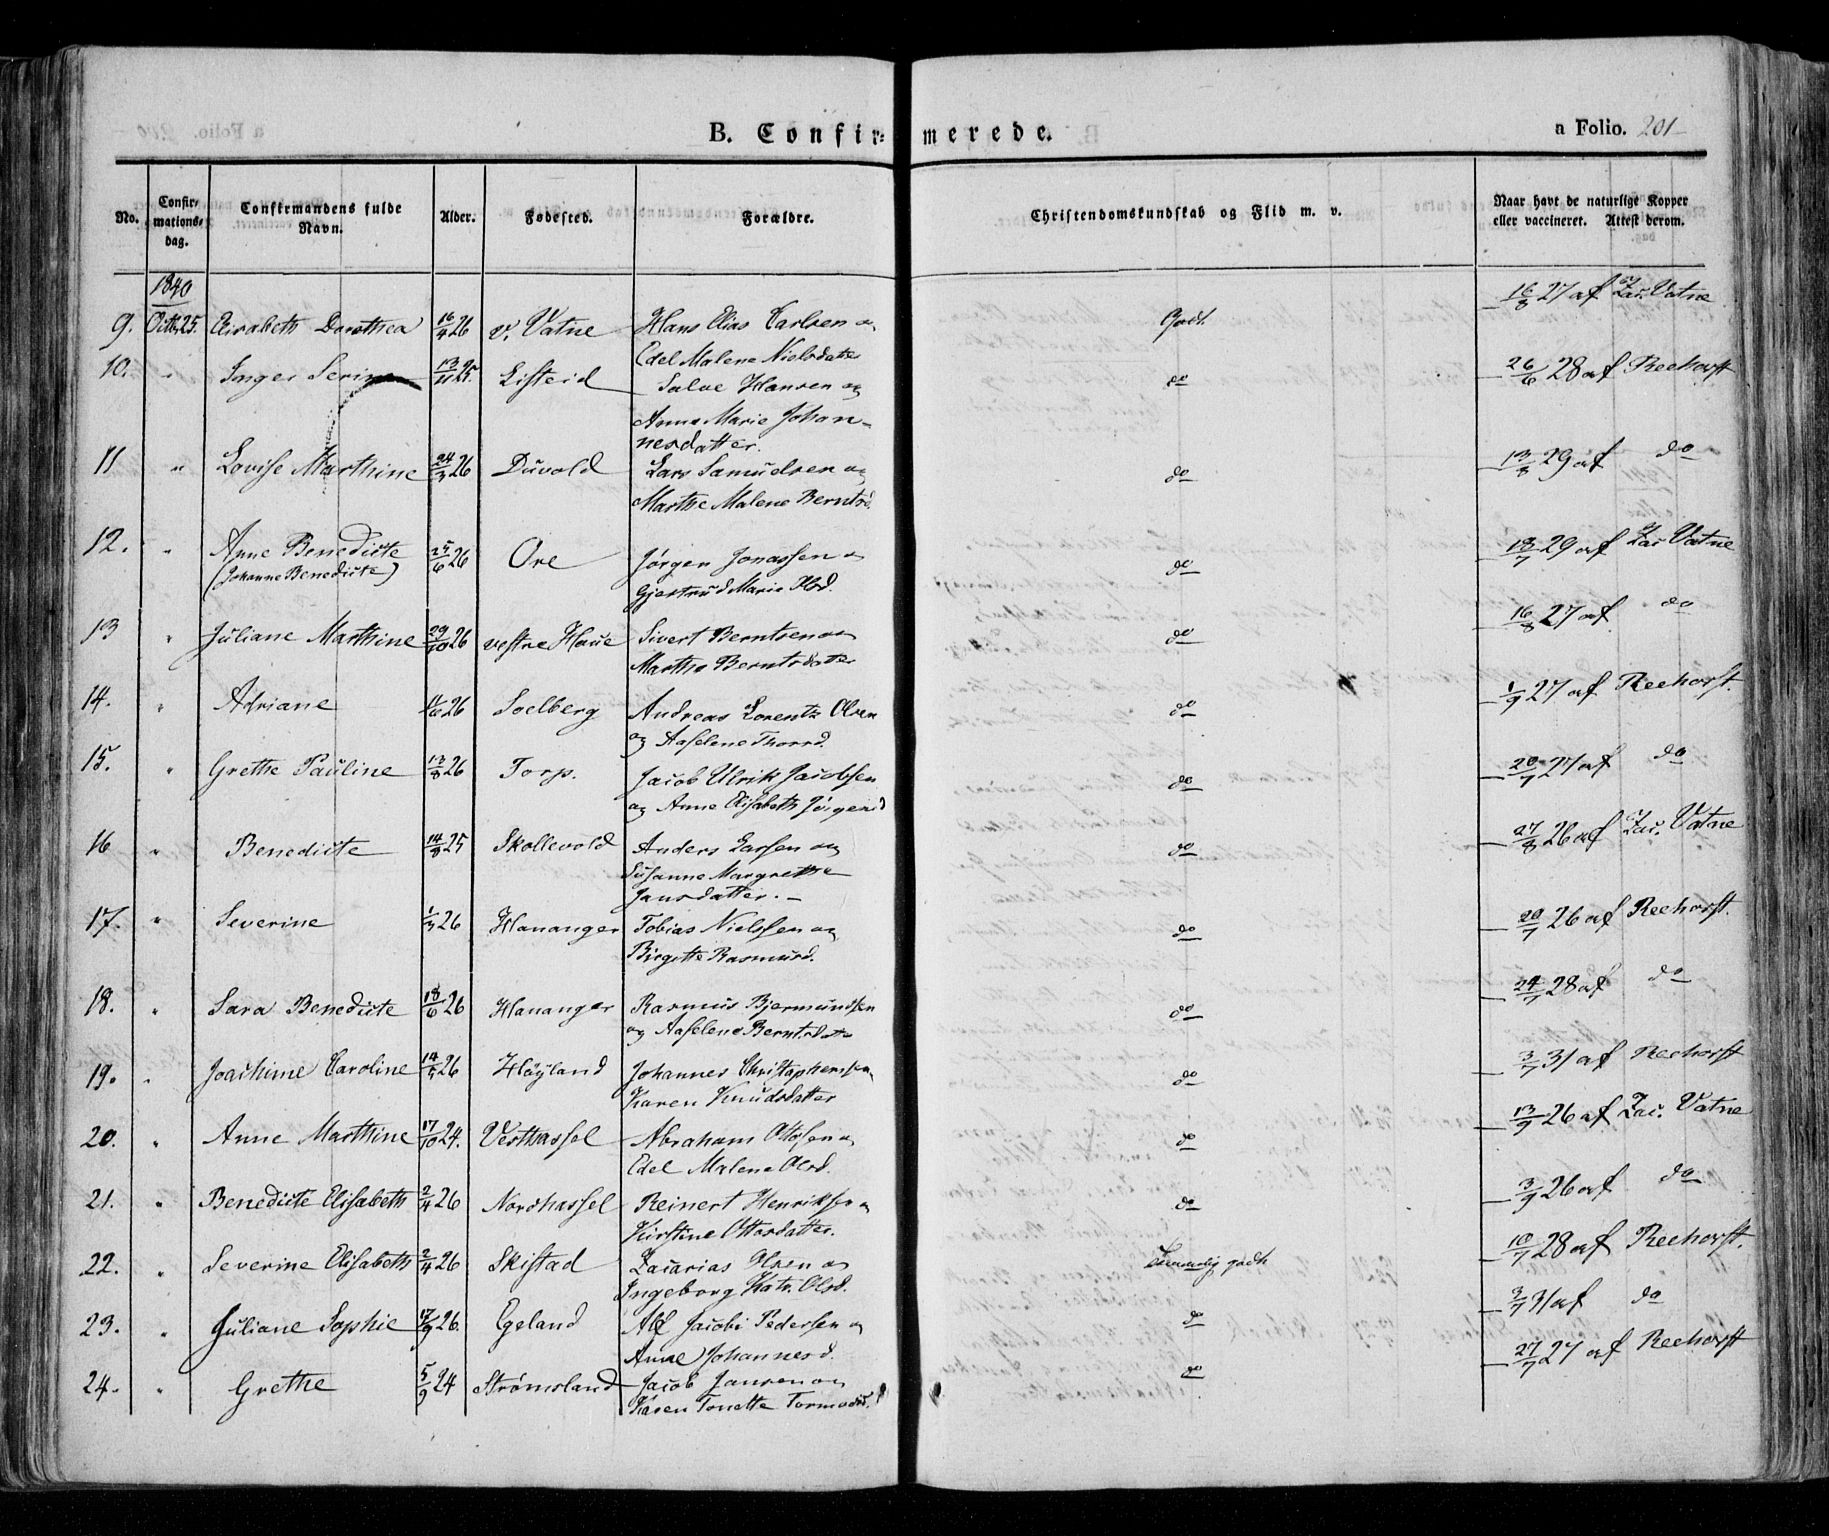 B. Confirmerede.
a Folio. 201
No. Confirmationsdag. Confirmandens fulde Navn. Alder. Fødested. Forældre. Christendomskundskab og Flid m. v. Naar havt de naturlige Kopper eller vaccineret. Attest derom.
1840
9. Octbr 25. Elisabeth Dorothea 16/4 26 v. Vatne Hans Elias Carlsen og Godt 16/8 27 af Zac. Vatne
Edel Malene Nielsdatter
10. " Inger Serine 13/11 25. Listeid Salve Hansen og do 26/6 28 af Reehorst
Anna Marie Johan-
nesdatter.
11 " Lovise Marthine 24/3 26 Duvold Lars Samuelsen og do 13/8 29 af do
Marthe Malene Berntsd.
12. " Anne Benedicte 25/6 26 Ore Jørgen Jonassen og do 13/7 29 af Zac Vatne
(Johanne Benedicte) Gjertrud Marie Olsd.
13 " Juliane Marthine 29/10 26 vestre Haue Sivert Berntsen og do 16/8 27 af do
Marthe Berntsdatter
14. " Adriane 11/6 26 Soelberg Andreas Lorentz Olsen do 1/9 27 af Reehorst.
og Aaselene Thorsd.
15. " Grethe Pauline 13/8 26 Torp. Jacob Ulrik Jacobsen do 20/7 27 af do
og Anne Elisabeth Jørgensd
16 " Benedicte 14/8 25 Skollevold Anders Larsen og do 27/8 26 af Zac. Vatne
Susanne Margrethe
Jansdatter. -
17. " Severine 1/3 26 Hananger Tobias Nielssen og do 20/7 26 af Reehorst.
Birgitte Rasmusd.
18. " Sara Benedicte 18/6 26 Hananger Rasmus Bjermundsen do 24/7 28 af do
og Aaselene Berntsdatter
19. " Joachime Caroline 14/5 26 Høyland Johannes Christophersen do 3/7 31 af Reehorst
Karen Knudsdatter
20. " Anne Marthine 17/10 24. Vesthassel Abraham Ottosen og do 13/9 26 af Zac. Vatne
Edel Malene Olsd.
21. " Benedicte Elisabeth 2/4 26 Nordhassel Reinert Henriksen og do 3/9 26 af do
Kirstine Ottosdatter.
22. " Severine Elisabeth 2/4 26 Skistad Zacarias Olsen og Temmelig godt 10/7 28 af Reehorst.
Ingeborg Katr. Olsd.
23. " Juliane Sophie 17/9 26. Egeland Alf Jacobi Pedersen og do 3/7 31 af do
Anne Johannesd.
24. " Grethe 5/9 24 Strømsland Jacob Jansen og do 27/7 27 af Reehorst
Karen Tonette Tormodsd.